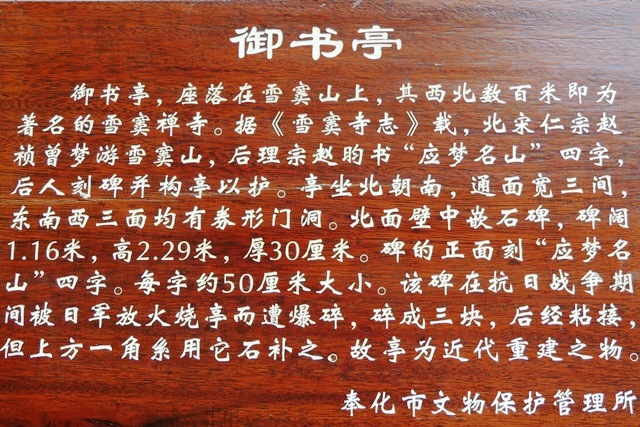 御书亭
御书亭，座落在雪窦山上，其西北数百米即为
著名的雪窦禅寺。据《雪窦寺志》载，北宋仁宗赵
祯曾梦游雪窦山，后理宗赵昀书“应梦名山”四字，
后人刻碑并构亭以护。亭坐北朝南，通面宽三间，
东南西三面均有券形门洞。北面壁中嵌石碑，碑阔
1.16米，高2.29米，厚30厘米。碑的正面刻“应梦名
山”四字。每字约50厘米大小。该碑在抗日战争期
间被日军放火烧亭而遭爆碎，碎成三块，后经粘接，
但上方一角系用它石补之。故亭为近代重建之物。
奉化市文物保护管理所